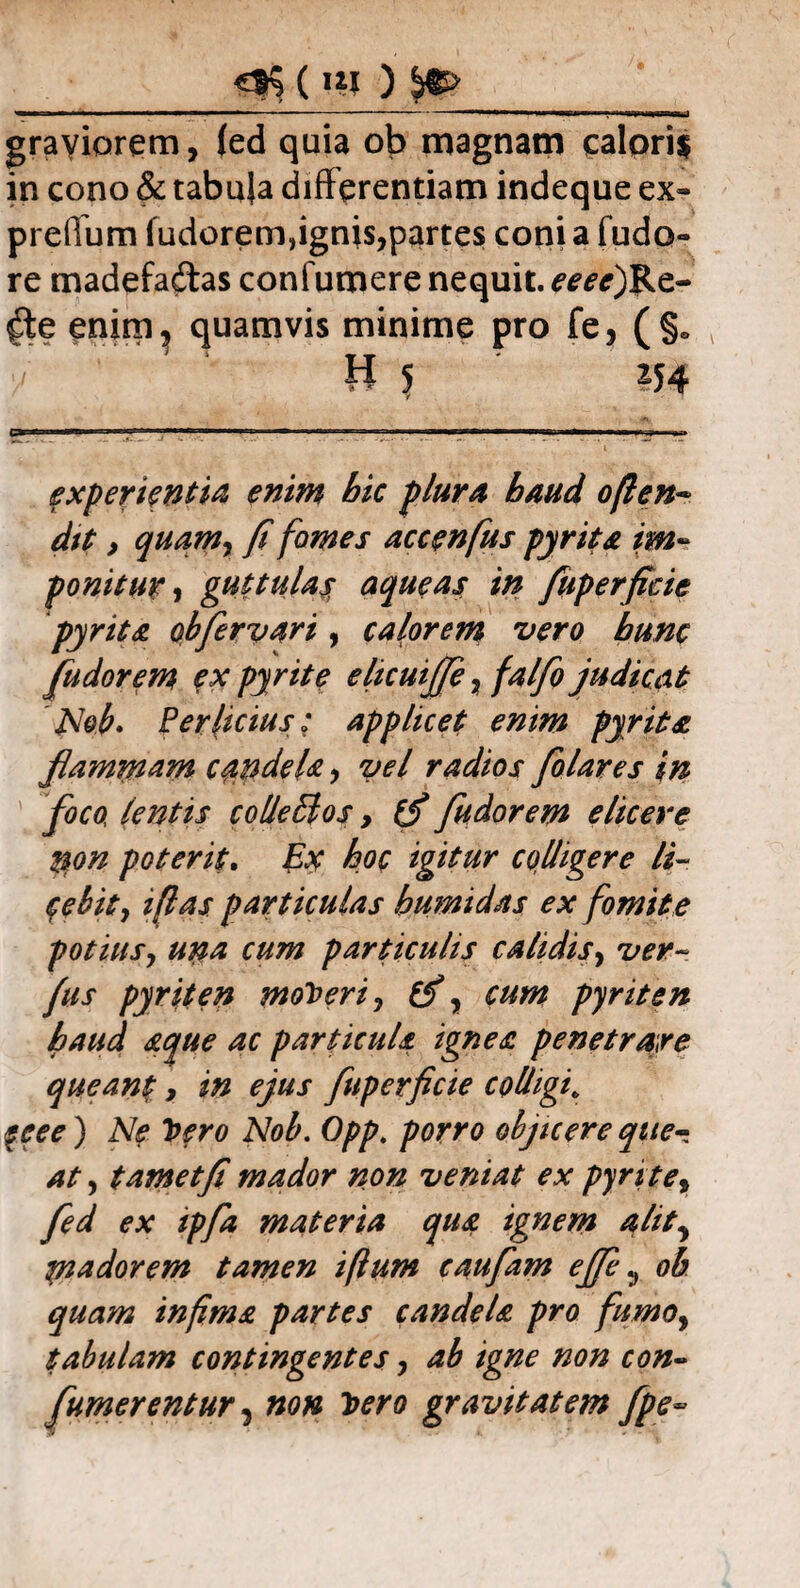 ( 121 )
graviorem, ſed quia ob magnam caloris
in cono & tabula differentiam indeque ex-
preſſum ſudorem,ignis,partes coni a ſudo-
re madefactas conſumere nequit. eeee)Re-
cte enim, quamvis minime pro ſe, (§.
H 5 254
experientia enim hic plura haud oſten-
dit, quam, ſi fomes accenſus pyritæ im-
ponitur, guttulas aqueas in ſuperficie
pyritæ obſervari, calorem vero hunc
ſudorem ex pyrite elicuiſſe, falſo judicat
Nob. Perlicius: applicet enim pyritæ
flammam candelæ, vel radios ſolares in
foco lentis collectos, & ſudorem elicere
non poterit. Ex hoc igitur colligere li-
cebit, iſtas particulas humidas ex fomite
potius, una cum particulis calidis, ver-
ſus pyriten moveri, &, cum pyriten
haud æque ac particulæ igneæ penetrare
queant, in ejus ſuperficie colligi.
eeee) Ne vero Nob. Opp. porro objicere que-
at, tametſi mador non veniat ex pyrite,
ſed ex ipſa materia quæ ignem alit,
madorem tamen iſtum cauſam eſſe, ob
quam infimæ partes candelæ pro fumo,
tabulam contingentes, ab igne non con-
ſumerentur, non vero gravitatem ſpe-